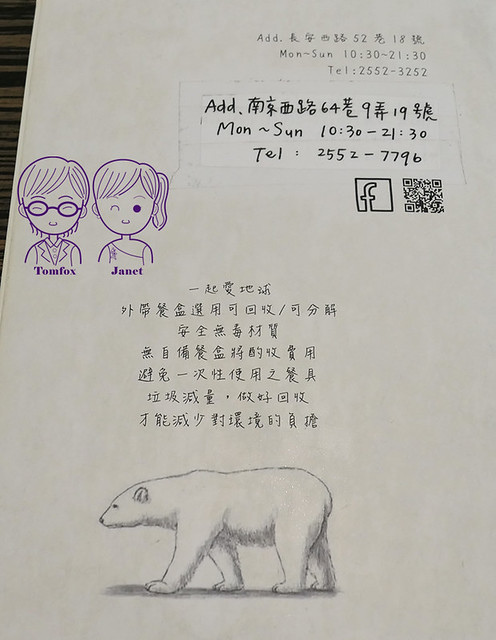 Add. 長安西路 52 巷 18 號
Mon~Sun 10:30~21:30
Tel:2552-3252
Add. 南京西路 64 巷 9 弄 19 號
Mon ~ Sun 10:30 - 21:30
Tel : 2552 - 7796
f
Tomfox Janet
一起愛地球
外帶餐盒選用可回收/可分解
安全無毒材質
無自備餐盒將酌收費用
避免一次性使用之餐具
垃圾減量，做好回收
才能減少對環境的負擔